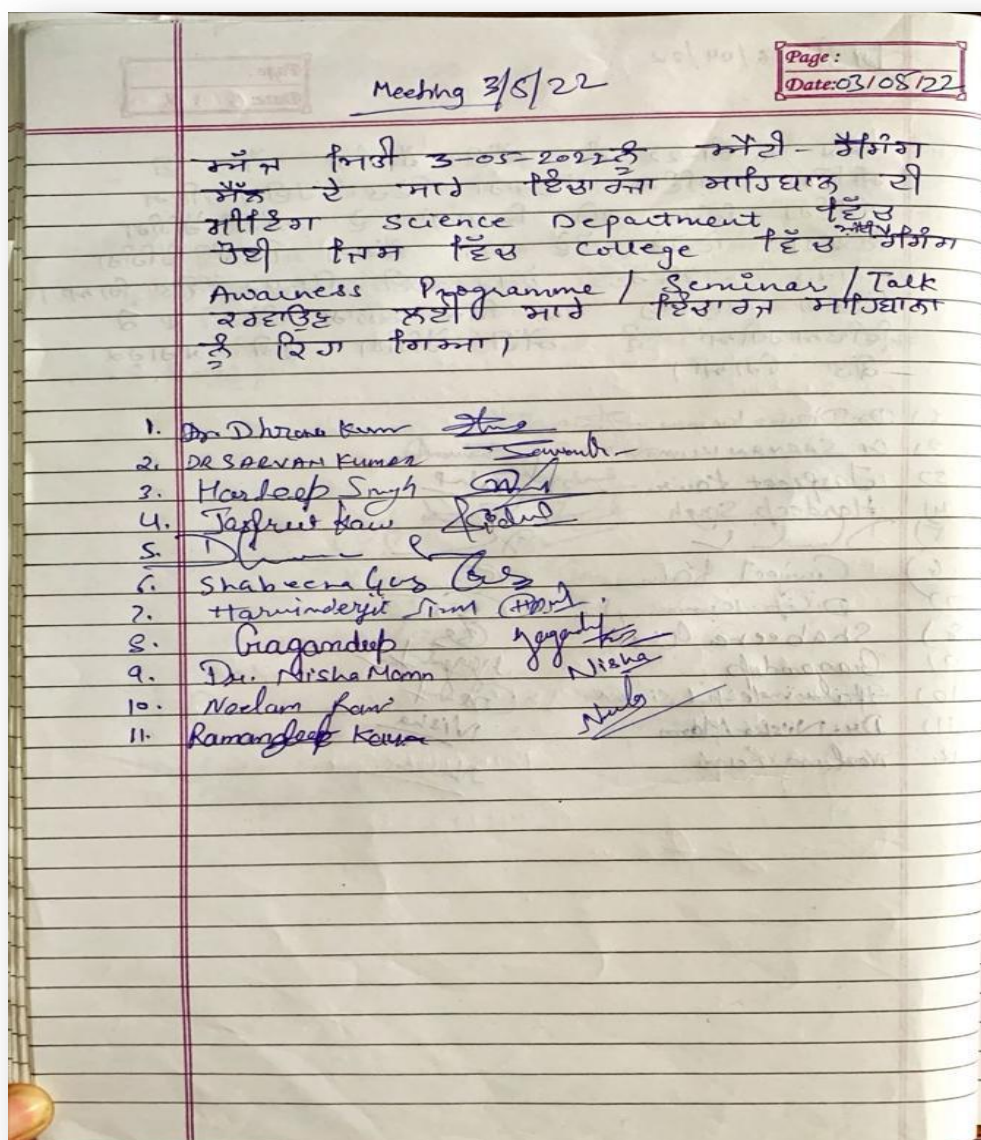 Page :
Date: 03/05/22
Meeting 3/5/22
ਅੱਜ ਮਿਤੀ 3-05-2022 ਨੂੰ ਐਂਟੀ-ਰੈਗਿੰਗ
ਸੈੱਲ ਦੇ ਸਾਰੇ ਇੰਚਾਰਜਾ ਸਾਹਿਬਾਨ ਦੀ
ਮੀਟਿੰਗ Science Department ਵਿੱਚ
ਹੋਈ ਜਿਸ ਵਿੱਚ College ਵਿੱਚ ਰੈਗਿੰਗ
Awairness Programme / Seminar / Talk
ਕਰਵਾਉਣ ਲਈ ਸਾਰੇ ਇੰਚਾਰਜ ਸਾਹਿਬਾਨਾ
ਨੂੰ ਕਿਹਾ ਗਿਆ।
1. Dr. Kumar
2. DR SARVAN KUMAR
3. Hardeep Singh
4. Jaspreet Kaur
5.
6. Shabeena
7. Harwinderjit Singh
8. Gagandeep
9. Dr. Nisha Mann Nisha
10. Neelam Rani
11. Ramandeep Kaur